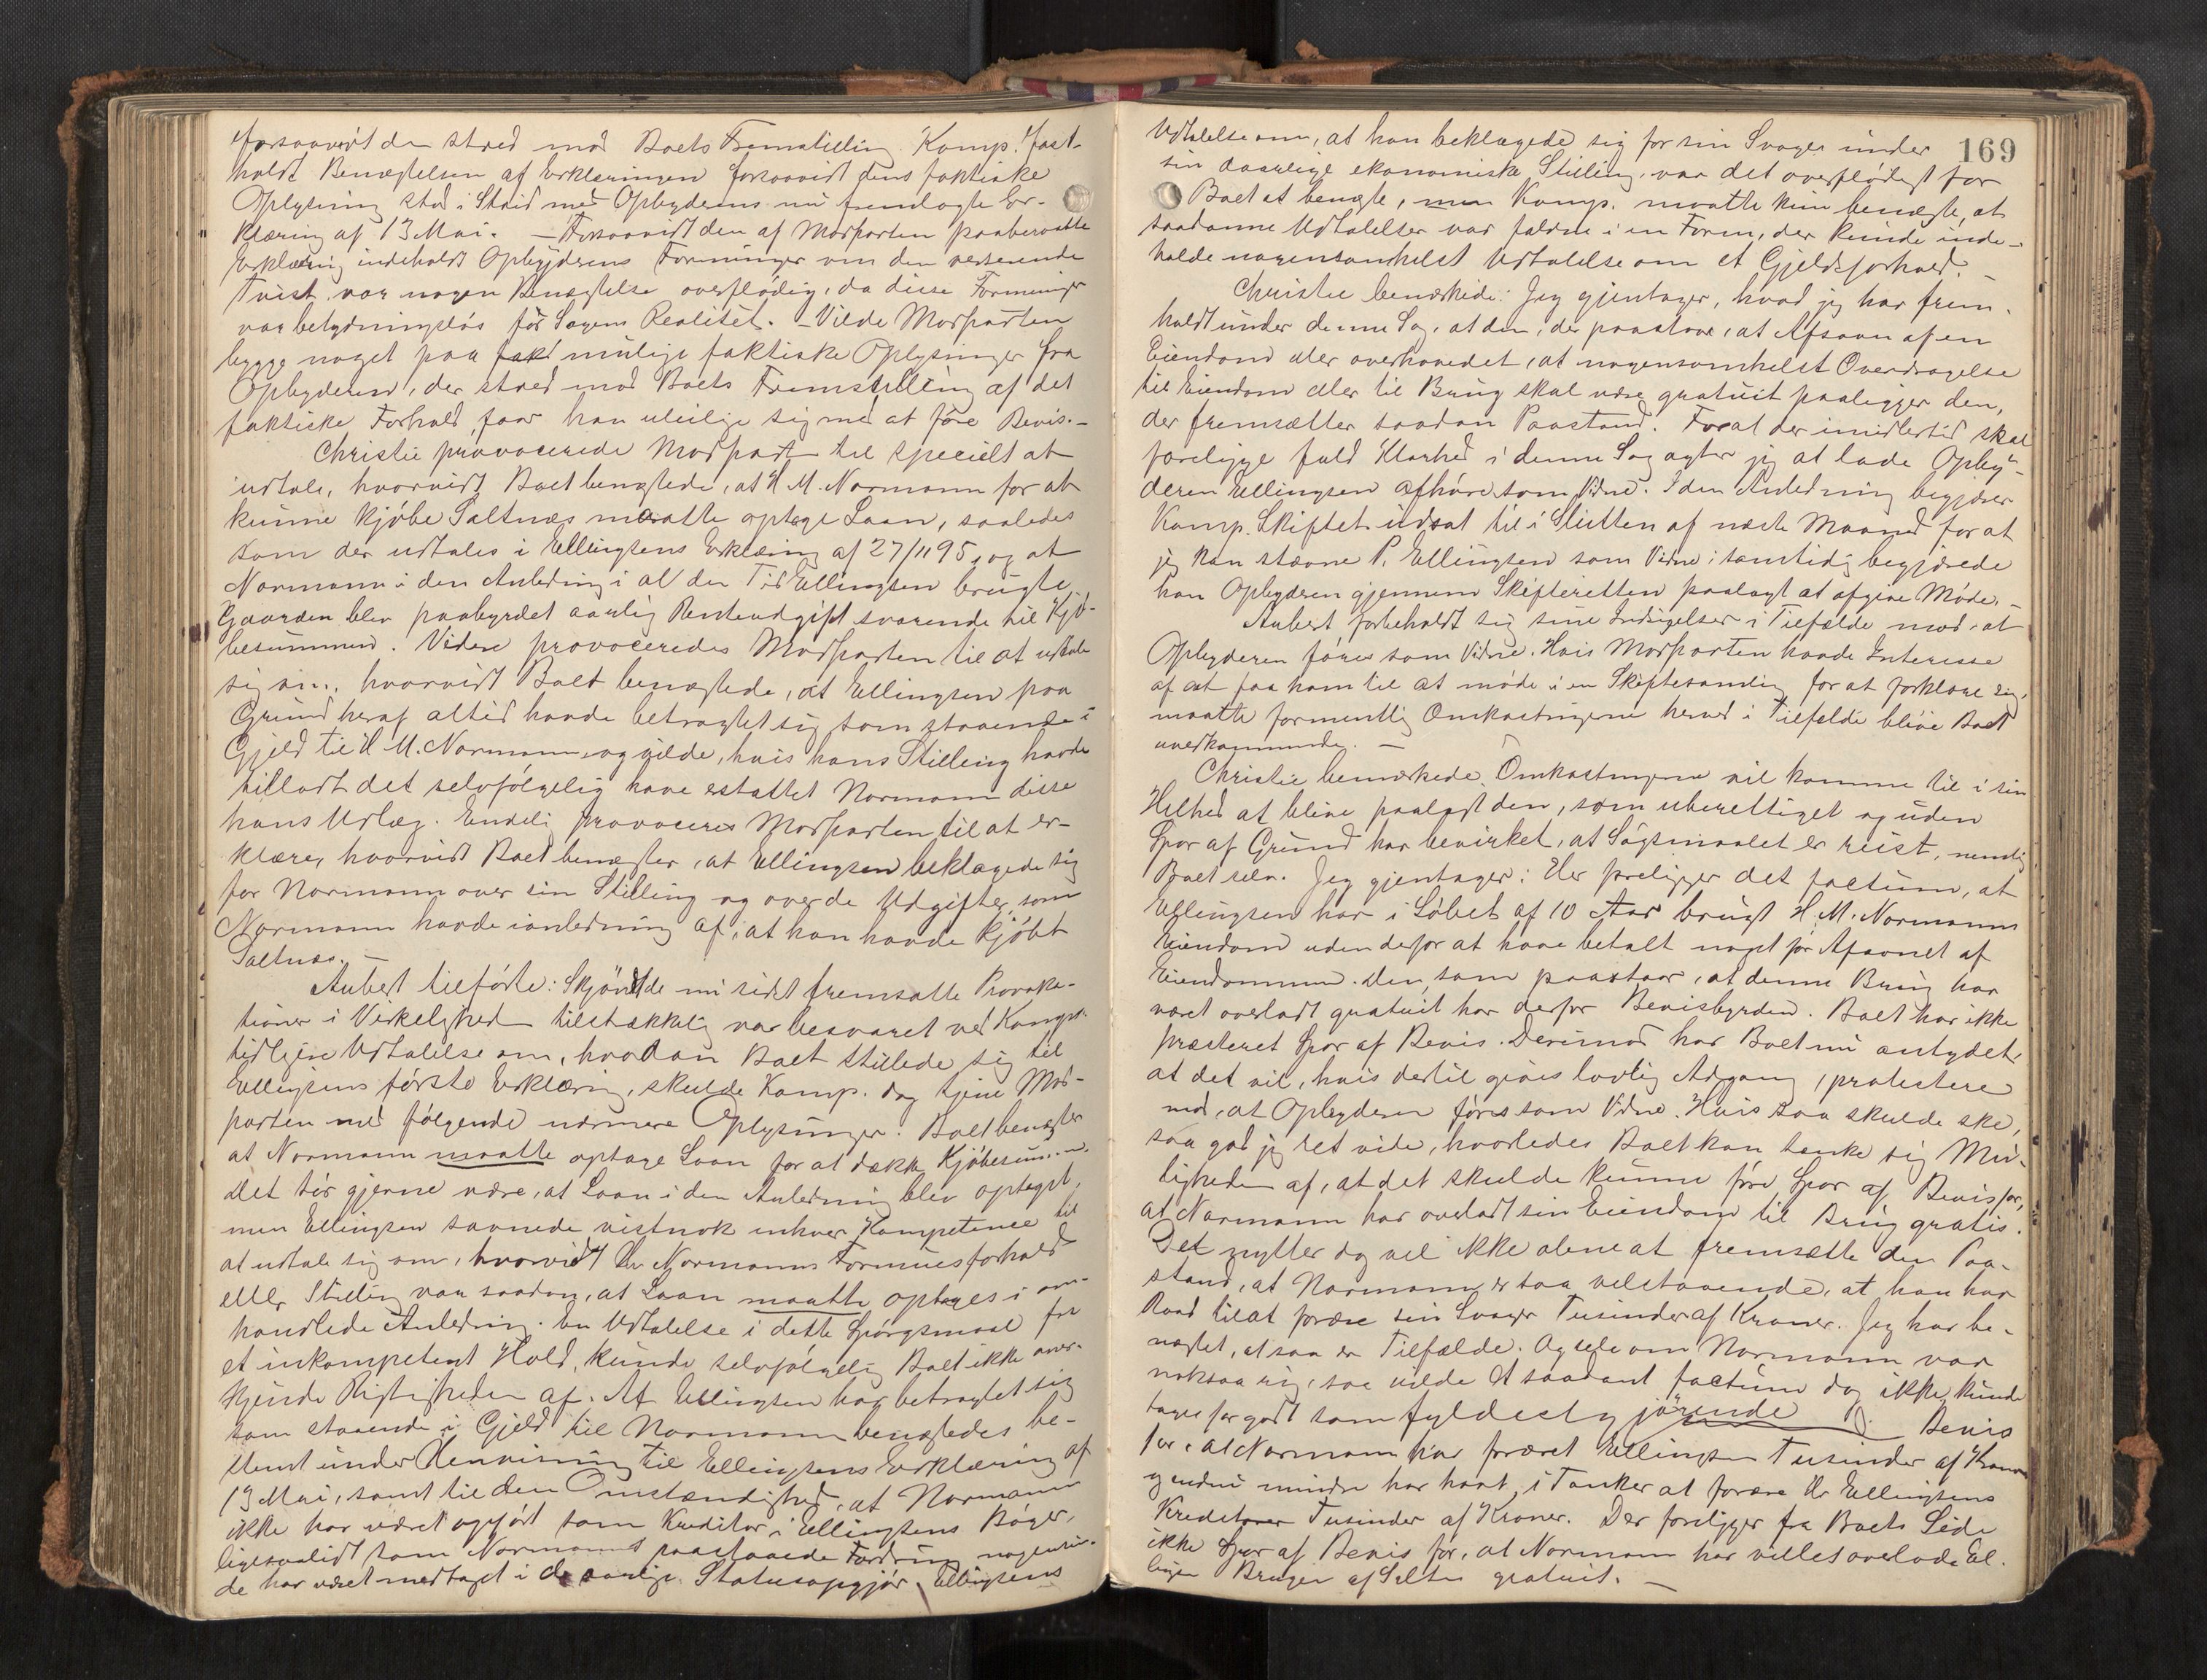 forsaavidt den stred mod Boets Fremstilling. Komp. fast-
holdt Benægtelsen af Erklæringen forsaavidt dens faktiske
Oplysning stod i Strid med Opbyderens nu fremlagte Er-
klæring af 13 Mai. – Forsaavidt den af Modparten paaberaabte
Erklæring indeholdt Opbyderens Formninger om den verserende
Tvist, var nogen Benægtelse overflødig, da disse Formninger
var betydningsløs for Sagens Realitet. – Vilde Modparten
bygge noget paa mulige faktiske Oplysninger fra
Opbyderen, der stred mod Boets Fremstilling af det
faktiske Forhold, faar han uleilige sig med at føre Bevis. –
Christie provocerede Modpart til specielt at
udtale, hvorvidt Boet benægtede, at H M. Normann for at
kunne kjøbe Saltnæs maatte optage Laan, saaledes
som der udtales i Ellingsens Erklæring af 27/11 95, og at
Normann i den Anledning i al den Tid Ellingsen brugte
Gaarden blev paabyrdet aarlig Renteudgift svarende til Kjø-
besummen. Videre provoceredes Modparten til at udtale
sig om, hvorvidt Boet benægtede, at Ellingsen paa
Grund heraf altid havde betragtet sig som staaende i
Gjeld til H M. Normann, og vilde, hvis hans Stilling havde
tilladt det selvfølgelig have erstattet Normann disse
hans Udlæg. Endelig provoceres Modparten til at er-
klære, hvorvidt Boet benægter, at Ellingsen beklagede sig
for Normann over sin Stilling og over de Udgifter, som
Normann havde ianledning af, at han havde kjøbt
Saltnæs. –
Aubert tilførte: Skjøndt de nu sidst fremsatte Provoka-
tioner i Virkelighed tilstrækkelig var besvaret ved Komp.
tidligere Udtalelse om, hvordan Boet stillede sig til
Ellingsens første Erklæring, skulde Komp. dog tjene Mod-
parten med følgende nærmere Oplysninger. Boet benægter
at Normann maatte optage Laan for at dække Kjøbesummen.
Det tør gjerne være, at Laan i den Anledning blev optaget,
men Ellingsen savnede vistnok enhver Kompetence til
at udtale sig om, hvorvidt Hr Normanns Formuesforhold
eller Stilling var saadan, at Laan maatte optages i om-
handlede Anledning. En Udtalelse i dette Spørgsmaal fra
et inkompetent Hold, kunde selvfølgelig Boet ikke aner-
kjende Rigtigheden af. At Ellingsen har betragtet sig
som staaende i Gjeld til Normann benægtedes be-
stemt under Henvisning til Ellingsens Erklæring af
13 Mai, samt til den Omstændighed, at Normann
ikke har været opført som Kreditor i Ellingsens Bøger,
ligesaalidt som Normanns paastaaede Fordring nogensin-
de har været medtaget i de aarlige Statusopgjør. Ellingsens
169
Udtalelse om, at han beklagede sig for sin Svoger under
sin daarlige økonomiske Stilling, var det overflødigt for
Boet at benægte, men Komp. maatte kun benægte, at
saadanne Udtalelser var faldne i en Form, der kunde inde-
holde nogensomhelst Udtalelse om et Gjeldsforhold. –
Christie bemærkede: Jeg gjentager, hvad jeg har frem-
holdt under denne Sag, at den, der paastaar, at Afsavn af en
Eiendom eller overhovedet, at nogensomhelst Overdragelse
til Eiendom eller til Brug skal være gratuit paaligger den,
der fremsætter saadan Paastand. Forat der imidlertid skal
foreligge fuld Klarhed i denne Sag agter jeg at lade Opby-
deren Ellingsen afhøre som Vidne. I den Anledning begjærer
Komp. Skiftet udsat til i Slutten af næste Maaned for at
jeg kan stævne P. Ellingsen som Vidne; samtidig begjærede
han Opbyderen gjennem Skifteretten paalagt at afgive Møde. –
Aubert forbeholdt sig sine Indsigelser i Tilfælde mod, at
Opbyderen føres som Vidne. Hvis Modparten havde Interesse
af at faa ham til at møde i en Skiftesamling for at forklare sig,
maatte formentlig Omkostningerne herved i Tilfælde blive Boet
uvedkommende. –
Christie bemærkede, Omkostningerne vil komme til i sin
Helhed at blive paalagt den, som uberettiget og uden
Spor af Grund har bevirket, at Søgsmaalet er reist, nemlig
Boet selv. Jeg gjentager: Her foreligger det factum, at
Ellingsen har i Løbet af 10 Aar brugt H. M. Normanns
Eiendom uden derfor at have betalt noget for Afsavnet af
Eiendommen. Den, som paastaar, at denne Brug har
været overladt gratuit har derfor Bevisbyrden. Boet har ikke
præsteret Spor af Bevis. Derimod har Boet nu antydet,
at det vil, hvis dertil gives lovlig Adgang, protestere
mod, at Opbyderen føres som Vidne. Hvis saa skulde ske,
saa gad jeg ret vide, hvorledes Boet kan tænke sig Mu-
ligheden af, at det skulde kunne føre Spor af Bevis for,
at Normann har overladt sin Eiendom til Brug gratis.
Det nytter dog vel ikke alene at fremsætte den Paa-
stand, at Normann er saa velstaaende, at han har
Raad til at forære sin Svoger Tusinder af Kroner. Jeg har be-
nægtet, at saa er Tilfælde. Og selv om Normann var
noksaa rig, saa vilde et saadant factum dog ikke kunde
tages for godt som fyldestgjørende Bevis
for, at Normann har foræret Ellingsen Tusinder af Kroner
og endnu mindre har havt i Tanker at forære Hr Ellingsens
Kreditorer Tusinder af Kroner. Der foreligger fra Boets Side
ikke Spor af Bevis for, at Normann har villet overlade El-
lingsen Brugen af Saltn gratuit. –